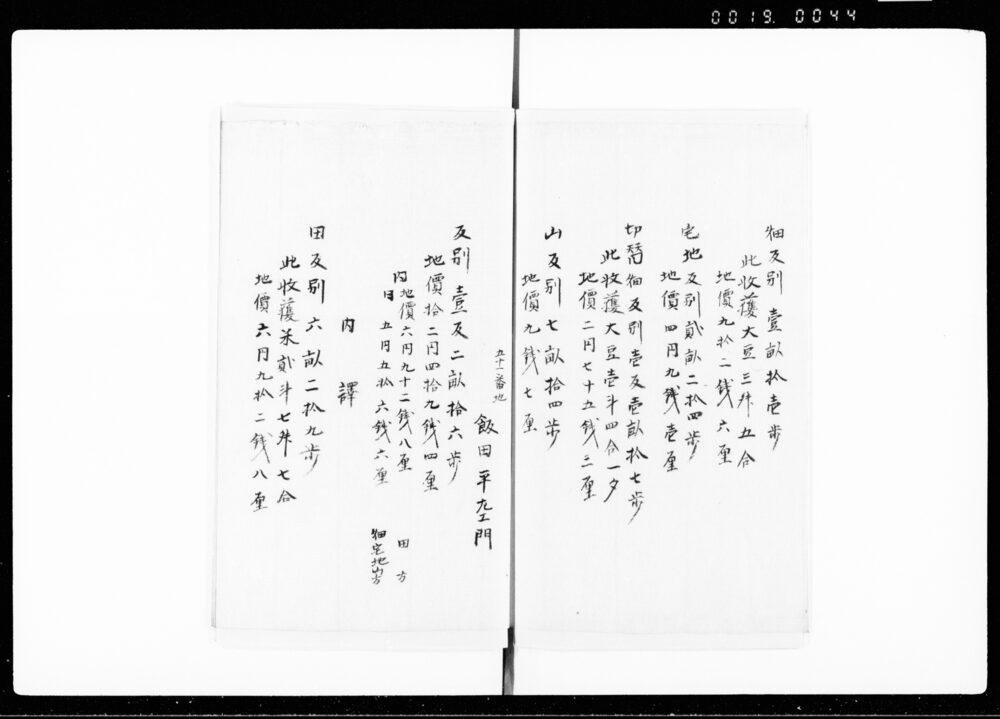 0019. 0044
畑反別壹畝拾壱歩
此收獲大豆三升五合
地價九拾二銭六厘
宅地反別貳畝二拾四歩
地價四円九銭壱厘
切替畑反別壱反壱畝拾七歩
此收獲大豆壱斗四合一夕
地價二円七十五銭三厘
山反別七畝拾四歩
地價九銭七厘
五十一番地
飯田平左エ門
反別壹反二畝拾六歩
地價拾二円四拾九銭四厘
内地價六円九十二銭八厘 田方
同五円五拾六銭六厘 畑宅地山方
内譯
田反別六畝二拾九歩
此收獲米貳斗七升七合
地價六円九拾二銭八厘